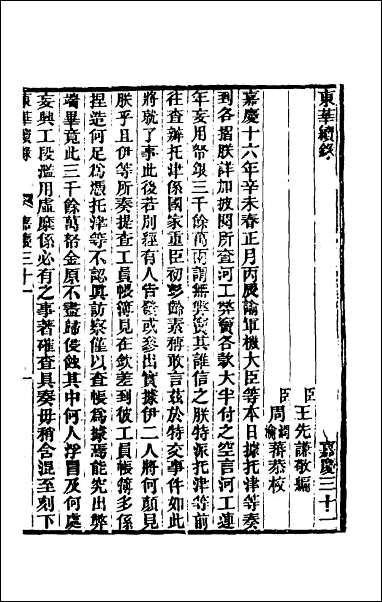 東華續錄　嘉慶三十一
臣王先謙敬編
臣周潤蕃周瀹蕃恭校
嘉慶十六年辛未春正月丙戌諭軍機大臣等本日據托津等奏
到各摺朕詳加披閱所查河工弊竇各款大半付之空言河工連
年妄用帑銀三千餘萬兩謂無弊竇其誰信之朕特派托津等前
往查辦托津係國家重臣初彭齡素稱敢言茲於特交事件如此
將就了事此後若別經有人告發或參出實據伊二人將何顏見
朕乎且伊等所奏提查工員帳簿見在欽差到彼工員帳簿多係
捏造何足為憑托津等不認真訪察僅以查帳為據焉能究出弊
端畢竟此三千餘萬帑金原不盡歸侵蝕其中何人浮冒及何處
妄興工段濫用虛糜係必有之事著確查具奏毋稍含混至刻下
東華續錄　嘉慶三十一　一